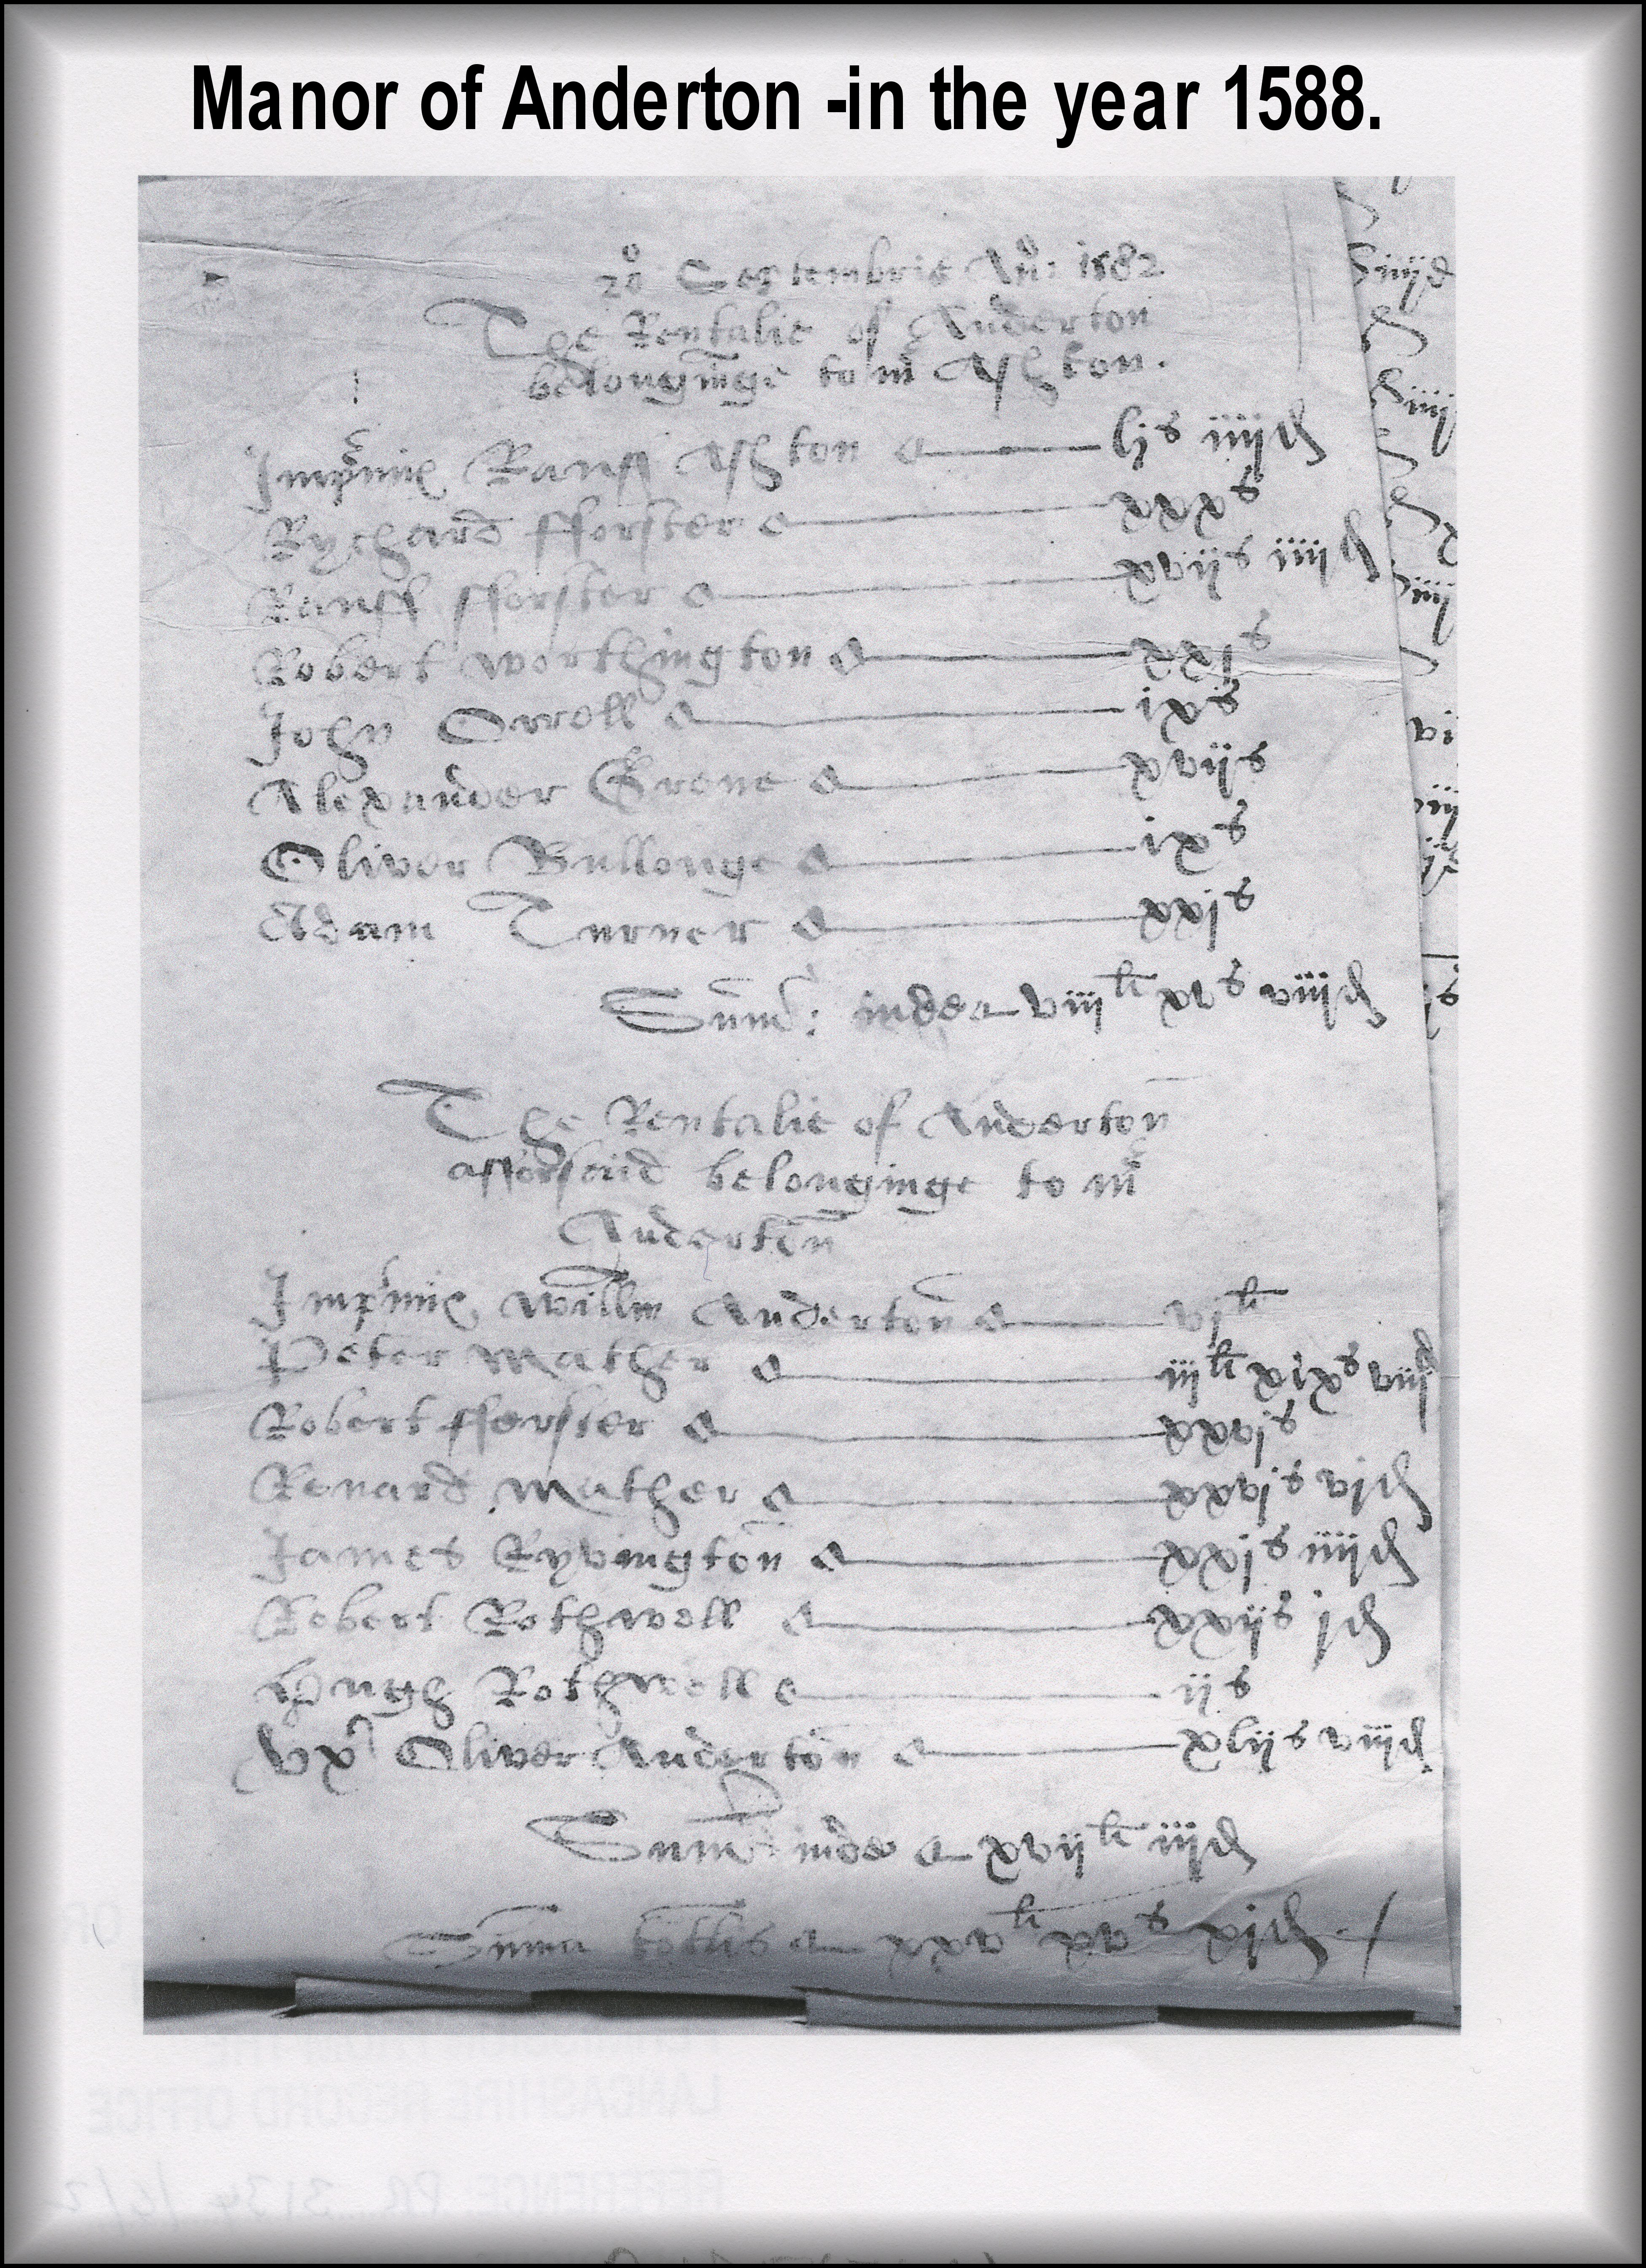 Manor of Anderton -in the year 1588.
20 Septembris Ano: 1582
The Rentalie of Anderton
belonginge to mr Ashton.
Imprimis Rauff Ashton ljs iiijd
Rychard fforster xxxs
Rauff fforster xvijs iiijd
Robert Worthington xxjs
John Orroll ixs
Alexander Grene xvijs
Oliver Bullouge ixs
Adam Turner xxjs
Sum: inde viijli xvs viijd
The Rentalie of Anderton
afforsaid belonginge to mr
Anderton
Imprimis Willm Anderton vjli
Peter Mather iijli xixs viijd
Robert fforster xxvjs
Renard Mather xxvjs vjd
James Ryvington xxjs iiijd
Robert Rothwell xxijs jd
Hugh Rothwell ijs
Vx Oliver Anderton xlijs viijd
Sum inde xvijli iijd
Summa totlis xxvli xvs xjd
LANCASHIRE RECORD OFFICE
REFERENCE